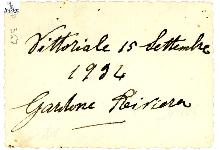 Vittoriale 15 Settembre
1934
Gardone Riviera